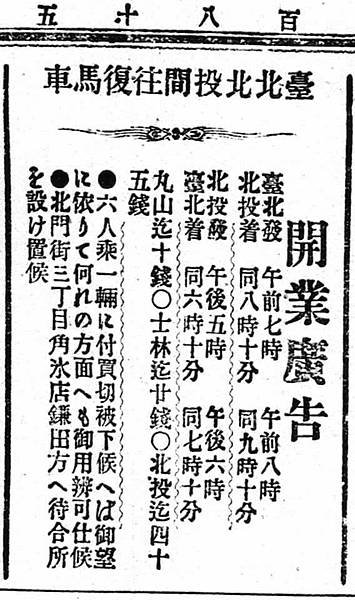 百八十五
臺北北投間往復馬車
開業廣告
臺北發 午前七時 午前八時
北投着 同八時十分 同九時十分
北投發 午後五時 午後六時
臺北着 同六時十分 同七時十分
丸山迄十錢〇士林迄廿錢〇北投迄四十
五錢
●六人乘一輛に付買切被下候へば御望
に依りて何れの方面へも御用辨可仕候
●北門街三丁目角氷店鎌田方へ待合所
を設け置候